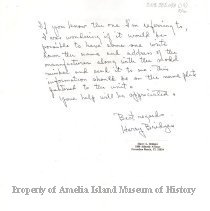 If you know the one I'm referring to,
I was wondering if it would be
possible to have some one write
down the name and address of the
manufacturer along with the model
number and send it to me. This
information should be on the name plate
fastened to the unit.
Your help will be appreciated.
Best regards
Harry Bridges
Property of Amelia Island Museum of History